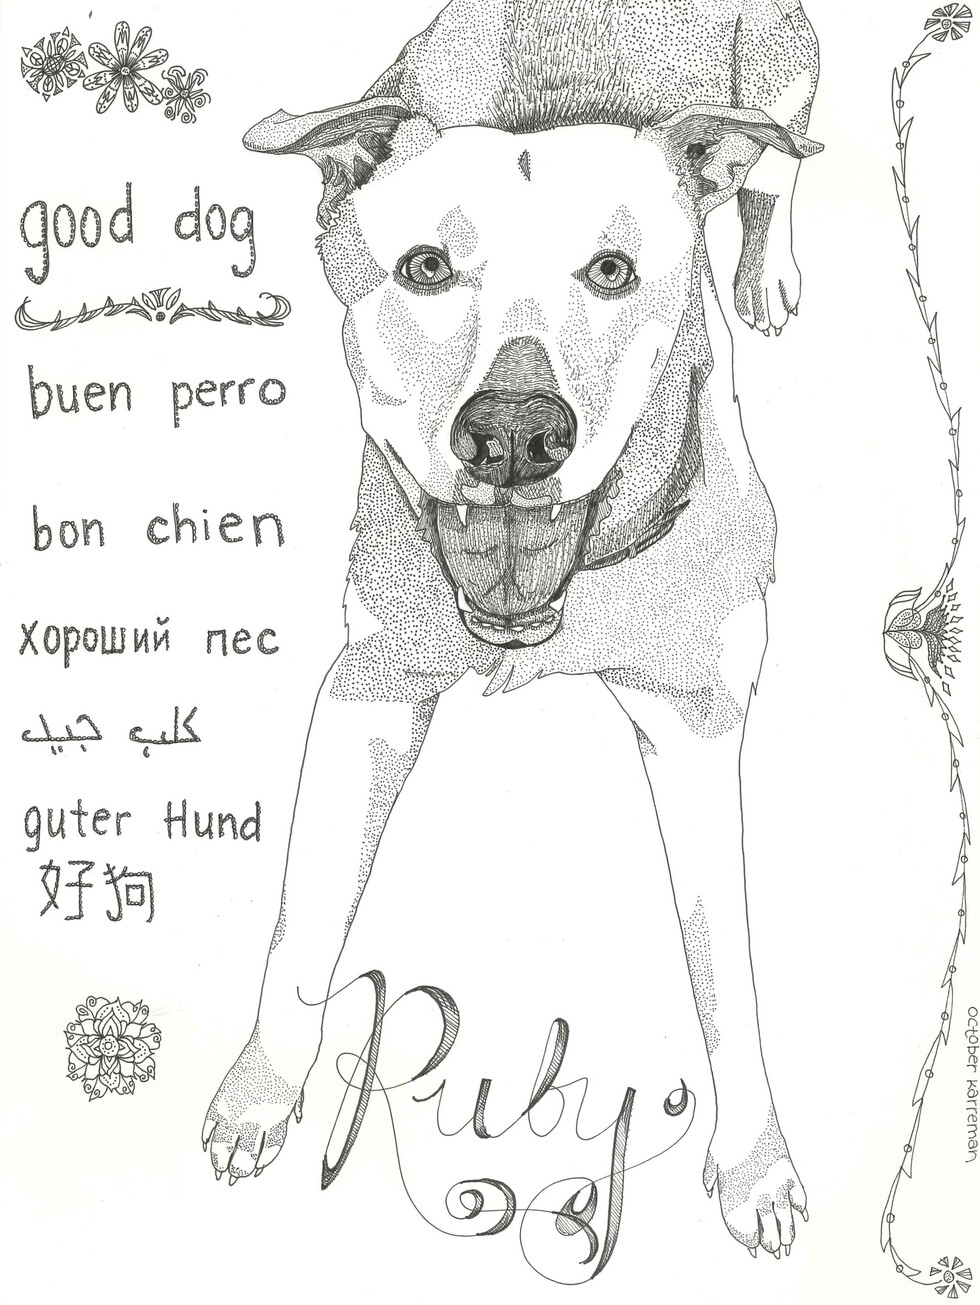 good dog
buen perro
bon chien
хороший пес
كلب جيد
guter Hund
好狗
Ruby
october karreman